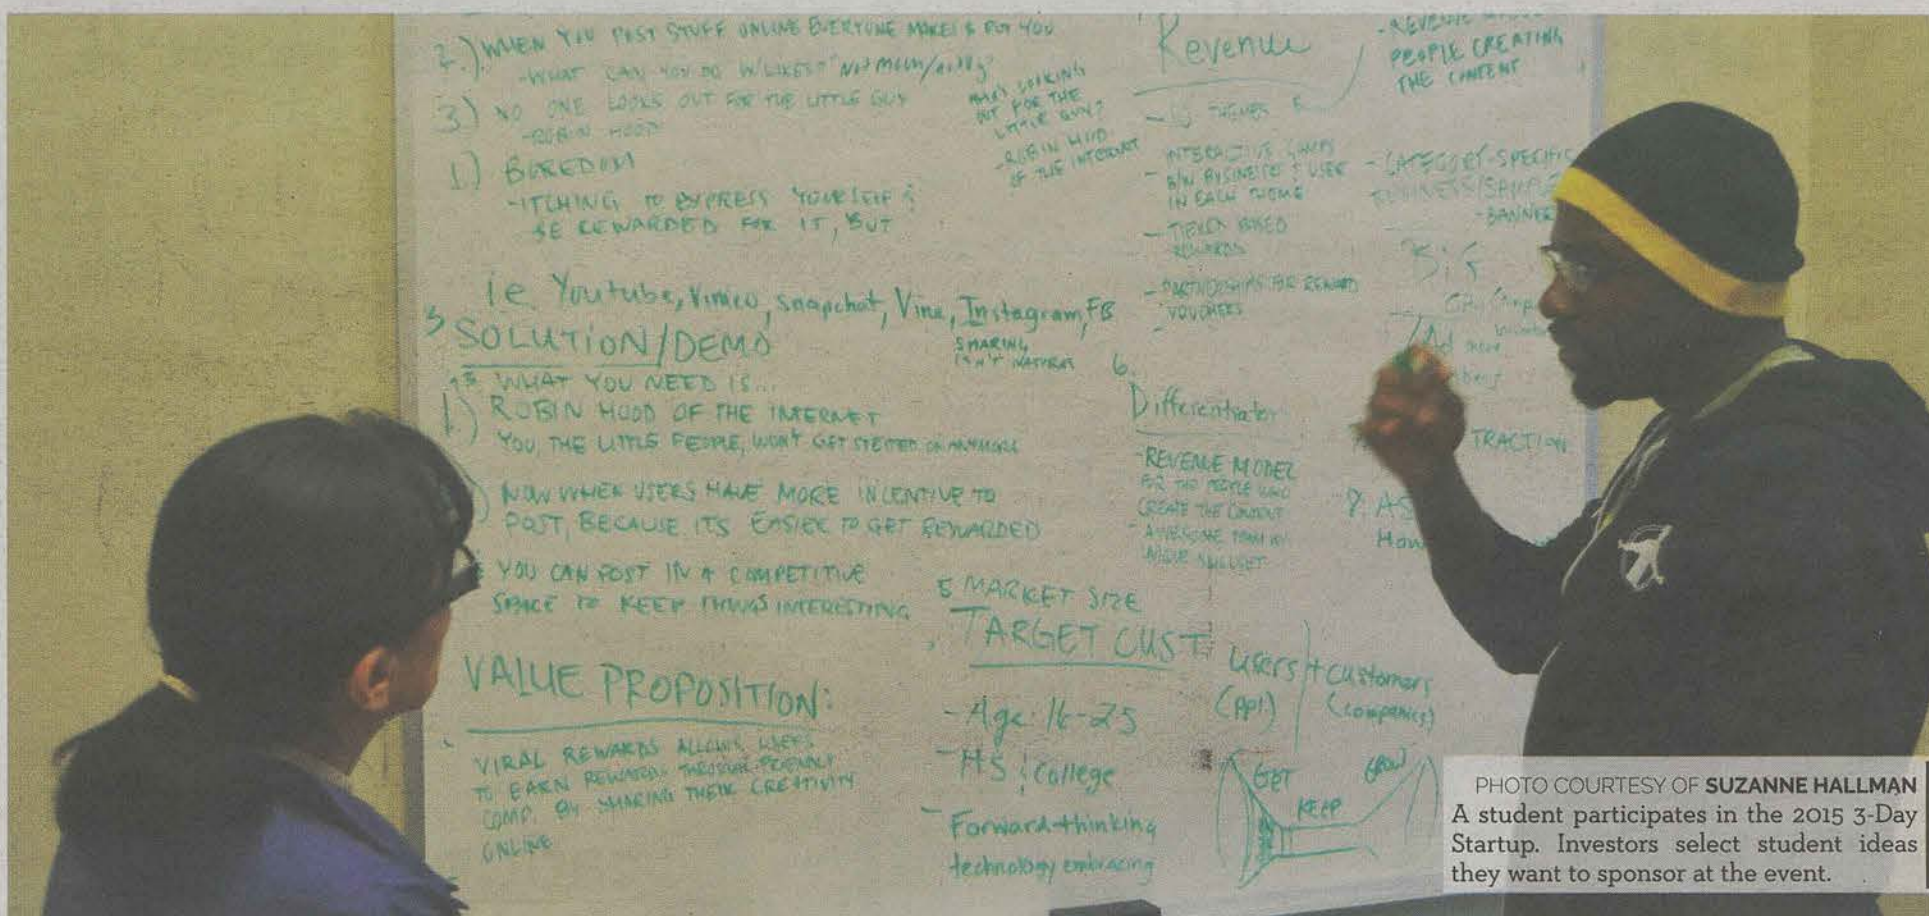 2.) WHEN YOU POST STUFF ONLINE EVERYONE MAKES $ BUT YOU
-WHAT CAN YOU DO W/LIKES?
3) NO ONE LOOKS OUT FOR THE LITTLE GUY
-ROBIN HOOD
WHO'S LOOKING
OUT FOR THE
LITTLE GUY?
-ROBIN HOOD
OF THE INTERNET
1.) BOREDOM
-ITCHING TO EXPRESS YOURSELF &
BE REWARDED FOR IT, BUT
i.e. Youtube, Vimeo, snapchat, Vine, Instagram, FB
SHARING
ISN'T
3 SOLUTION/DEMO
WHAT YOU NEED IS...
1.) ROBIN HOOD OF THE INTERNET
YOU, THE LITTLE PEOPLE, WON'T GET ON ANYMORE
) NOW WHEN USERS HAVE MORE INCENTIVE TO
POST, BECAUSE ITS EASIER TO GET REWARDED
YOU CAN POST IN A COMPETITIVE
SPACE TO KEEP THINGS INTERESTING
VALUE PROPOSITION:
VIRAL REWARDS ALLOWS USERS
TO EARN REWARDS THROUGH FRIENDLY
COMP. BY SHARING THEIR CREATIVITY
ONLINE
Revenue
THEMES
- INTERACTIVE GAMES
B/W BUSINESS & USER
IN EACH THEME
- TIERED BASED
REWARDS
- PARTNERSHIPS FOR REWARD
VOUCHERS
- REVENUE
PEOPLE CREATING
THE CONTENT
- CATEGORY-SPECIFIC
BUSINESS/SAMPLE
- BANNER
Ad more
6.
Differentiator
-REVENUE MODEL
FOR THE PEOPLE WHO
CREATE THE CONTENT
- AWESOME TEAM W/
UNIQUE SKILLSET
TRACTION
How
5 MARKET SIZE
TARGET CUST
- Age: 16-25
- HS & College
- Forward-thinking
technology embracing
users + customers
(App) (companies)
GET
KEEP
GROW
PHOTO COURTESY OF SUZANNE HALLMAN
A student participates in the 2015 3-Day
Startup. Investors select student ideas
they want to sponsor at the event.